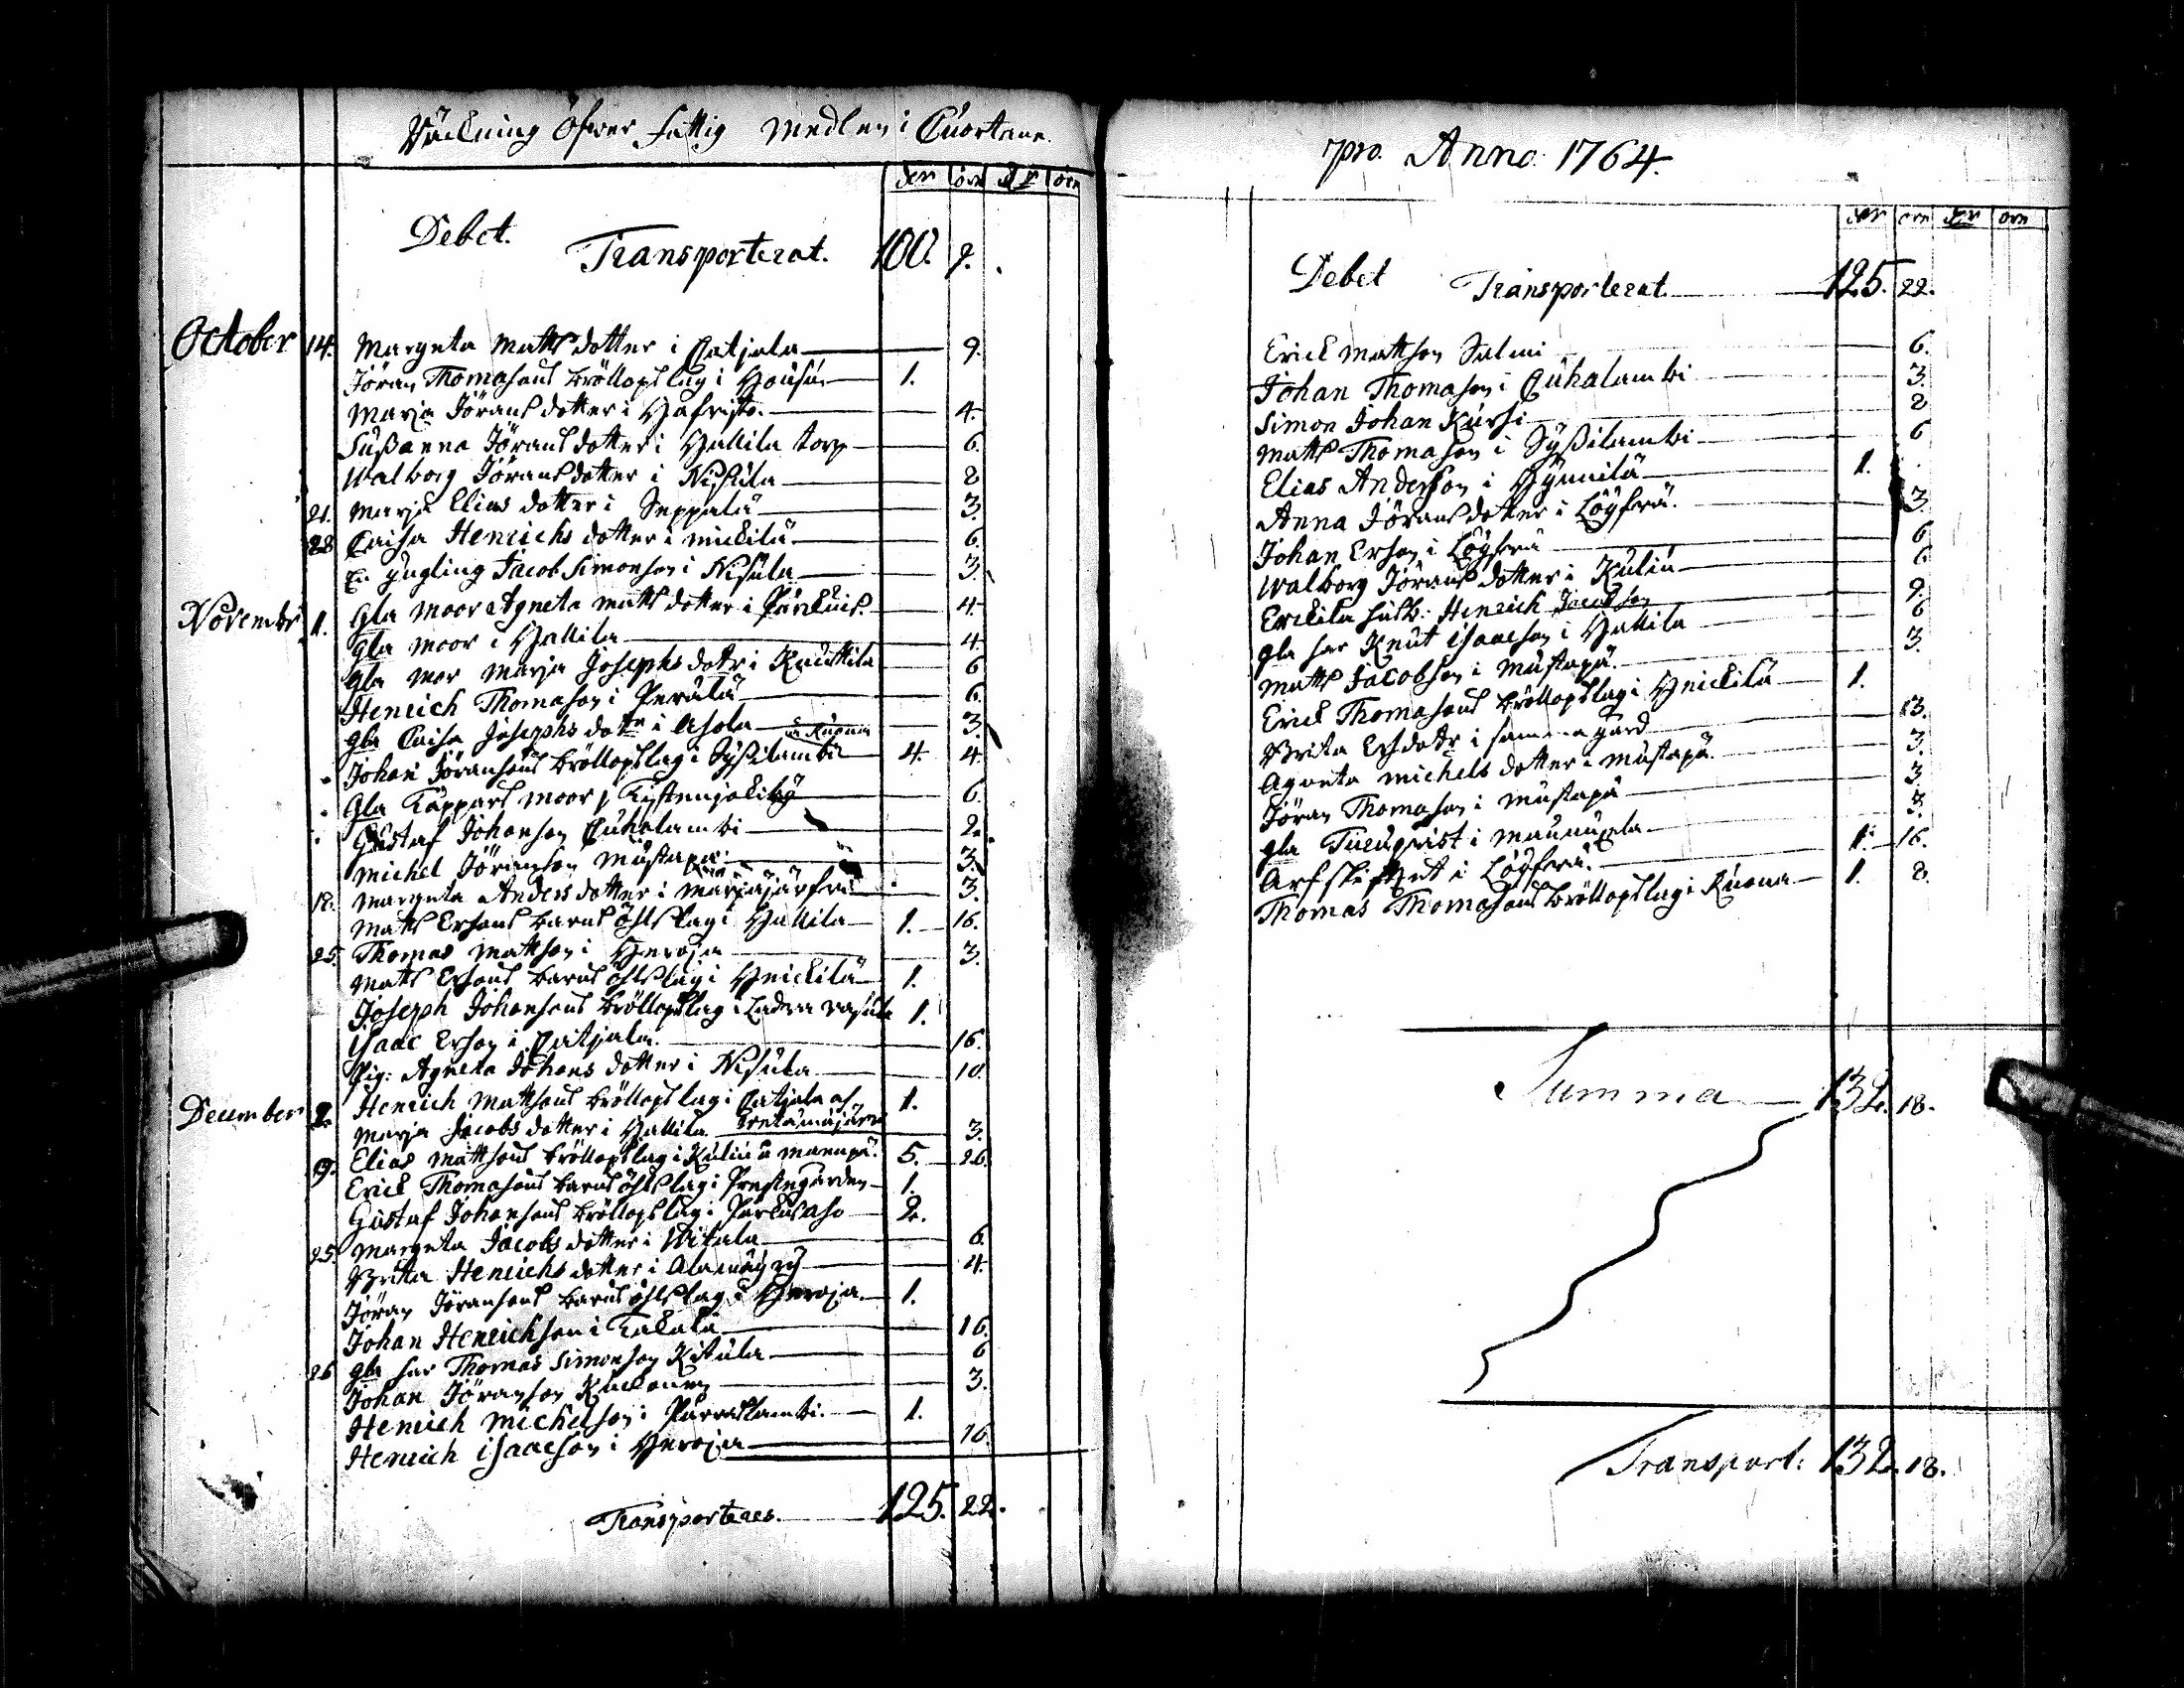 Räkning öfwer fattig medlen i Cuortane
dlr öre dlr öre
Debet. Transporterat. 100. 9.
October 14. Margeta Matts dotter i Catjala 9.
Jöran Thomasons bröllopslag i 1.
Marja Jörans dotter i 4.
Sußanna Jörans dotter i Hallila torp 6.
Walborg Jöransdotter i Niskila 8
21. Marja Elias dotter i Seppälä 3.
28 Caisa Henrichs dotter i Mickilä 6.
En yngling Jacob Simonson i Nisula 3.
Novembr 1. Gla moor Agneta Matts dotter i 4.
Gla moor i Hallila 4.
Gla mor Marja Josephs dotr i Knuttila 6
Henrich Thomason i Perälä 6.
Gla Caisa Josephs dottr i Asola 3.
Johan Jöransons bröllopslag i Syßilambi a Kuona 4. 4.
Gla Kappars moor j 6.
Gustaf Johanson Cuhalambi 2.
Michel Jöranson Mustapä 3.
18. Margeta Anders dotter i Marjajärfwi 3.
Matts Ersons barns öhlslag i Hallila 1. 16.
25. Thomas Mattson i Heroja 3.
Matts Ersons barns öhlslag i Hnickilä 1.
Joseph Johansons bröllopslag i Ladva 1.
Isaac Erson i Catjala. 16.
Pig: Agneta Johans dotter i Nisula 10.
December 2. Henrich Mattsons bröllopslag i Catjala 1.
Marja Jacobs dotter i Hallila 3.
9. Elias Mattsons bröllopslag i Kuliu a 5. 26.
Erick Thomasons barns öhlslag i Prestegården 1.
Gustaf Johansons bröllopslag i 2.
25. Margeta Jacobs dotter i Witala 6.
Brita Henrichs dotter i 4.
Jöran Jöransons barns öhlslag i Heroja 1.
Johan Henrichson i Kakala 16.
26 gla far Thomas Simonson Kitula 6
Johan Jöranson Kuckonen 3.
Henrich Michelson i 1.
Henrich Isaacson i Heroja 16.
Transporteres. 125. 22.
pro. Anno 1764.
dlr öre dlr öre
Debet Transporterat. 125. 22.
Erick Mattson Salmi 6.
Johan Thomason i Cuhalambi 3.
Simon Johan Kurki 8
Matts Thomason i Syßilambi 6
Elias Anderson i Hynnilä 1.
Anna Jörans dotter i Löyfrä. 3.
Johan Erson i Löyfrä 6
Walborg Jörans dotter i Kuliu 6
Erckila husb: Henrich Jacobson 9.
gla far Knut Isaacson i Hallila 6
Matts Jacobson i Mustapä. 3.
Erick Thomasons bröllopslag i Hnickilä 1.
Brita Ersdotr i samma gård 13.
Agneta Michels dotter i Mustapä. 3.
Jöran Thomason i Mustapä 3.
gla Turuqvist i 3.
Arfskiftet i Löyfrä. 1. 16.
Thomas Thomasons bröllopslag i Kuona 1. 8.
Summa 132. 18.
Transport: 132. 18.